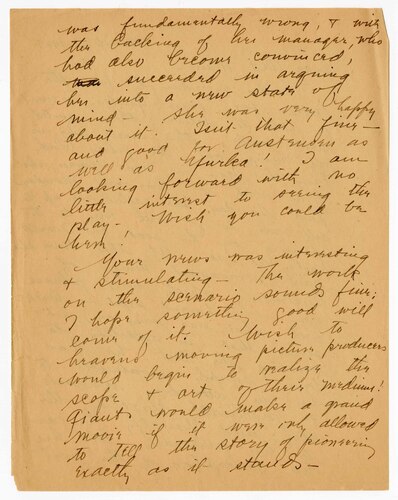 was fundamentally wrong, & with
the backing of her manager, who
had also become convinced,
succeeded in arguing
her into a new state of
mind — she was very happy
about it. Isn't that fine —
and good for Austenden as
well as Yurka! I am
looking forward with no
little interest to seeing the
play — Wish you could be
here!
Your news was interesting
& stimulating — The work
on the scenario sounds fine;
I hope something good will
come of it. Wish to
heavens moving picture producers
would begin to realize the
scope & art of their medium!
Giants would make a grand
movie if it were only allowed
to tell the story of pioneering
exactly as it stands —